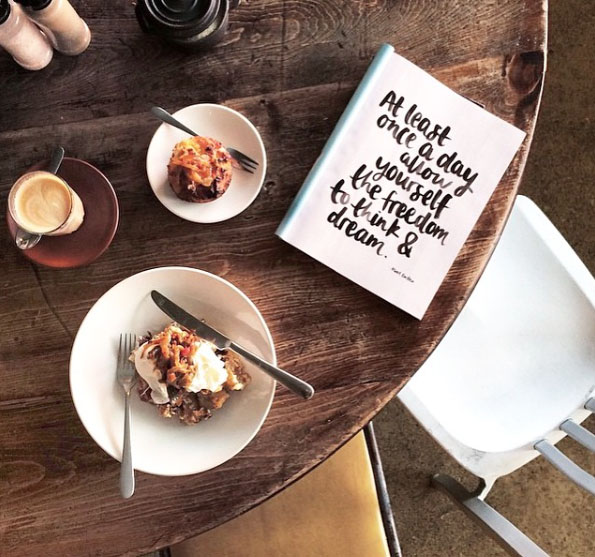 At least
once a day
allow
yourself
the freedom
to think &
dream.